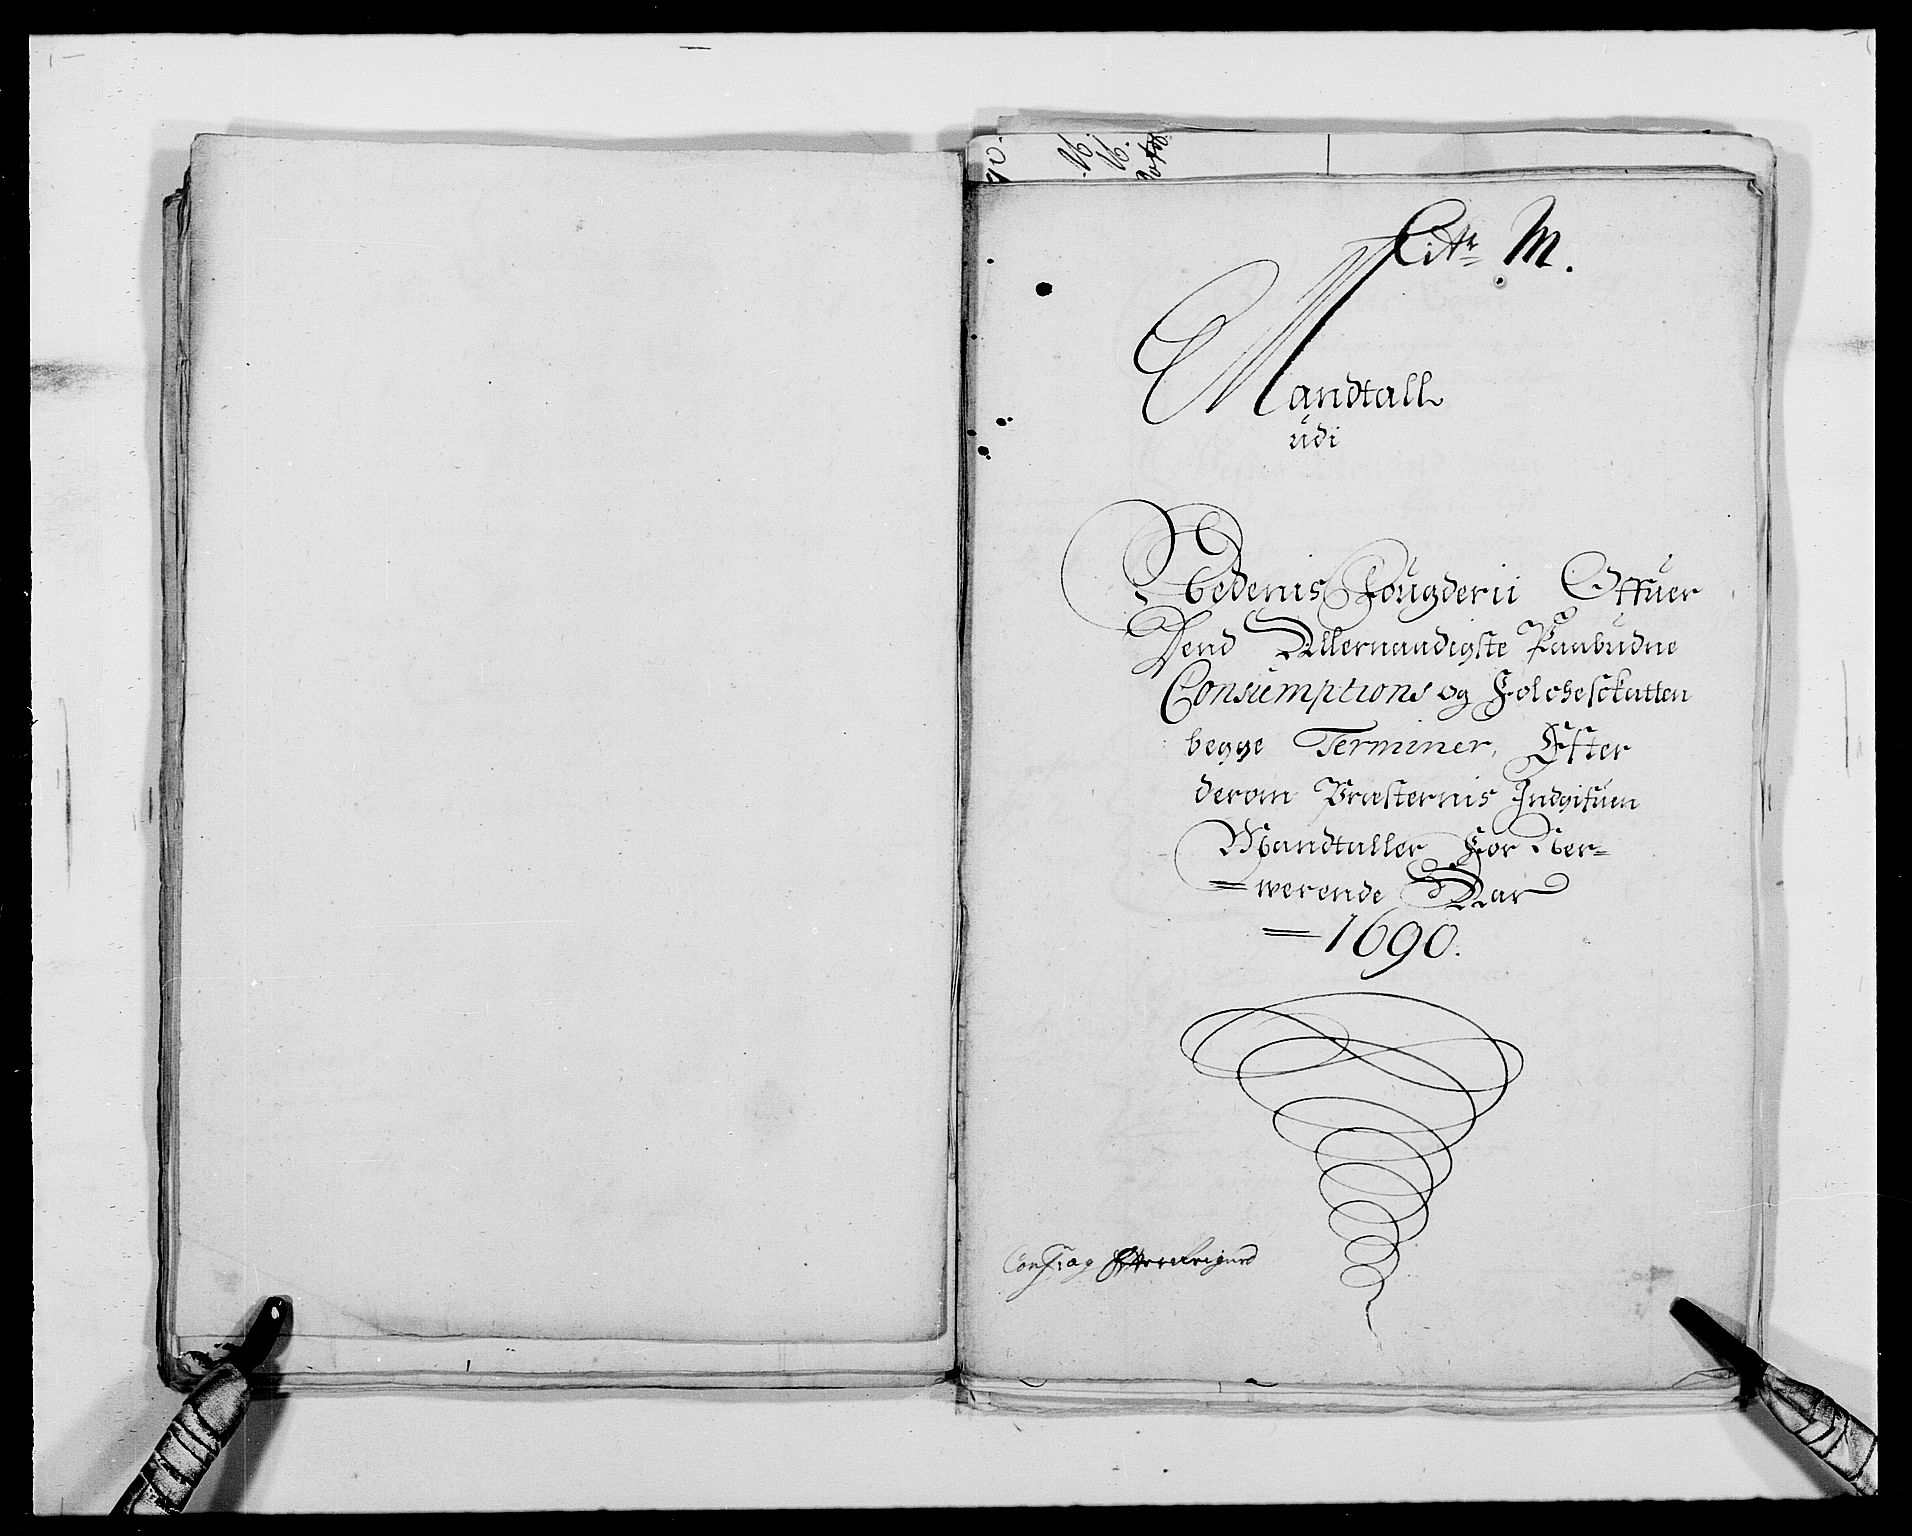 Litr M.
Mandtall
udi
Nedenis Fougderii Offuer
Dend Allernaadigste Paabudne
Consumptions og Folcheschatten
begge Terminer, Efter
derom Præsternis Indgifuen
Mandtaller For Ner=
=werende Aar
=1690.